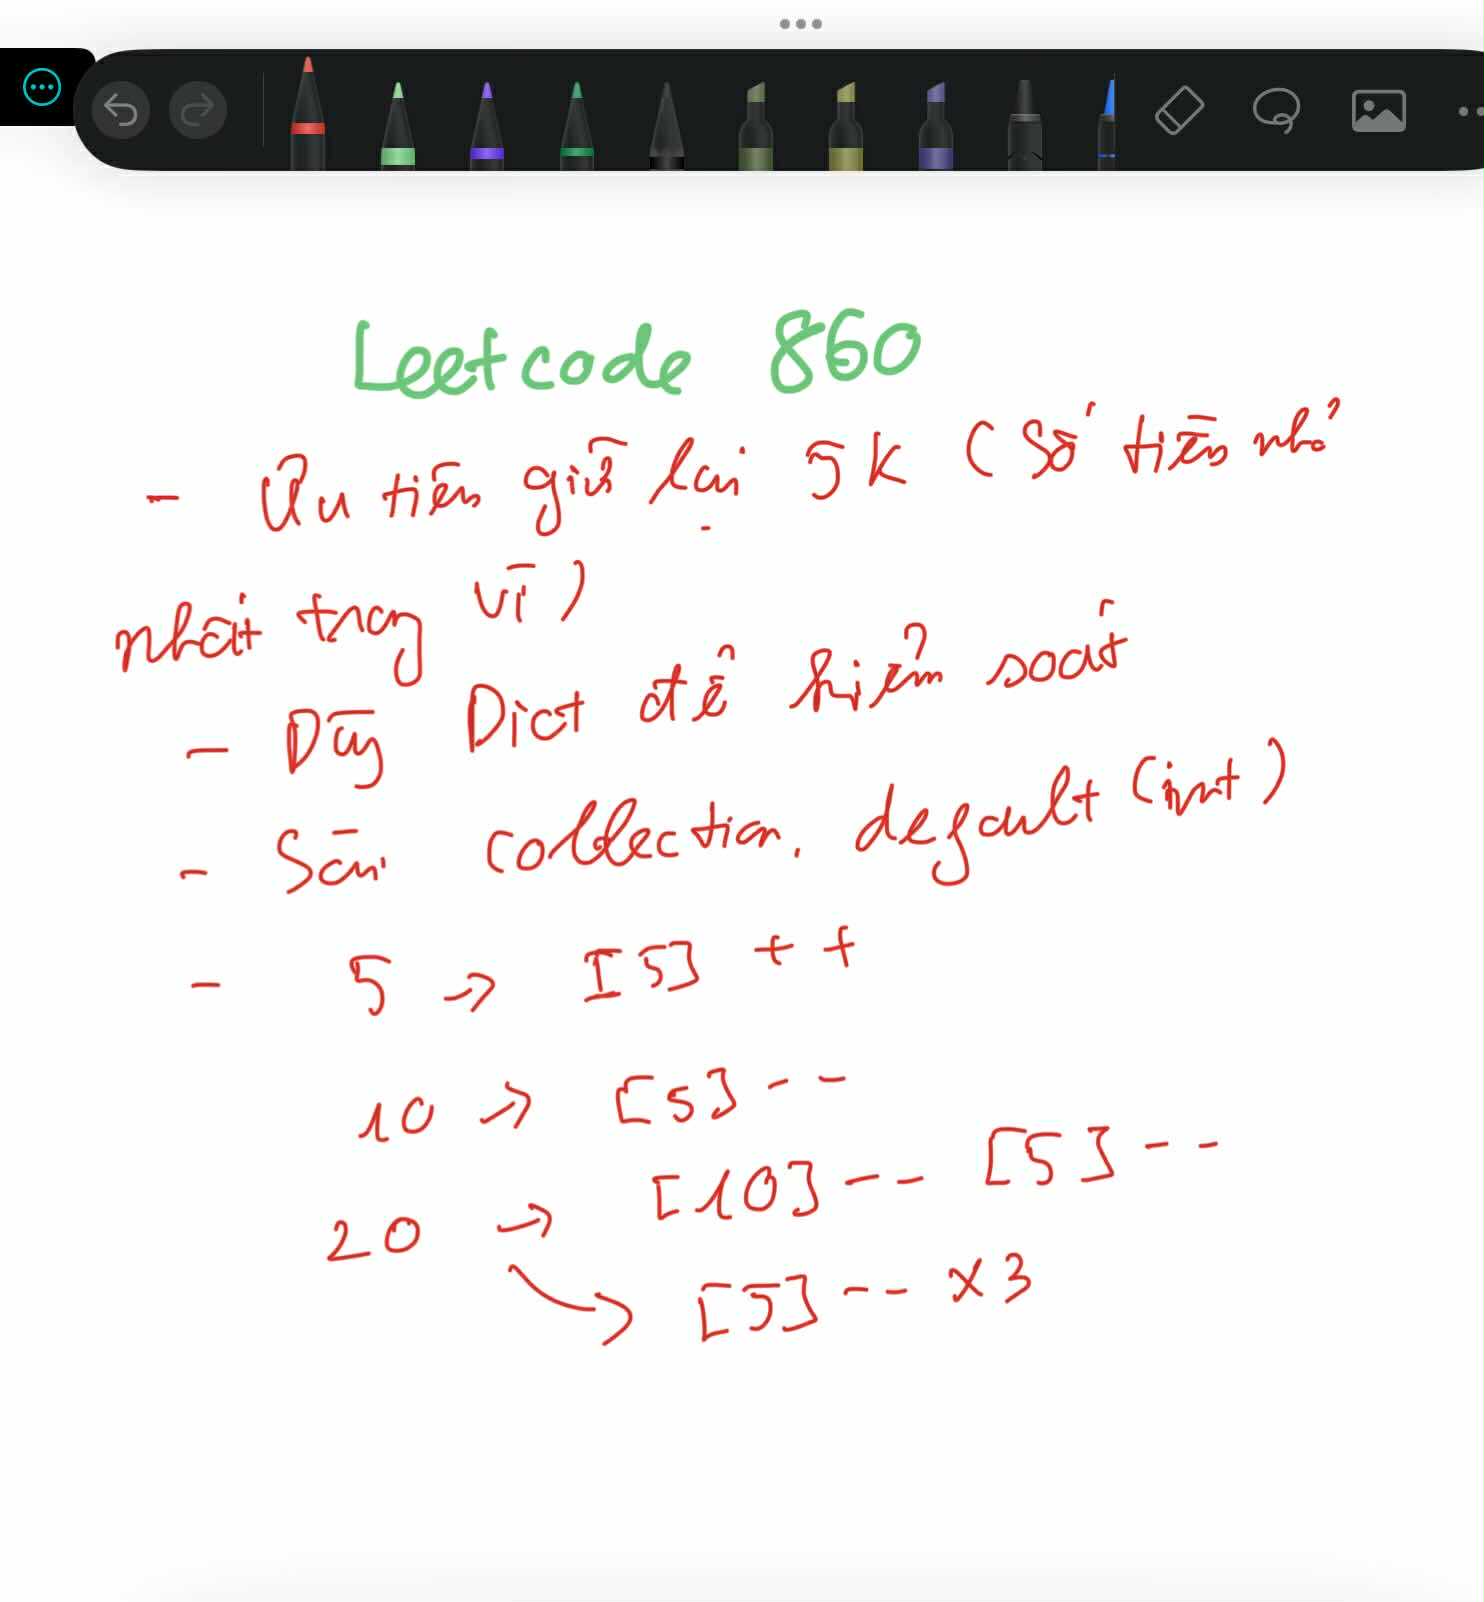 Leetcode 860
- Ưu tiên giữ lại 5k (Số tiền nhỏ
nhất trong ví)
- Dùng Dict để kiểm soát
- Sài collection. default (int)
- 5 -> [5] ++
10 -> [5] --
20 -> [10] -- [5] --
-> [5] -- x3